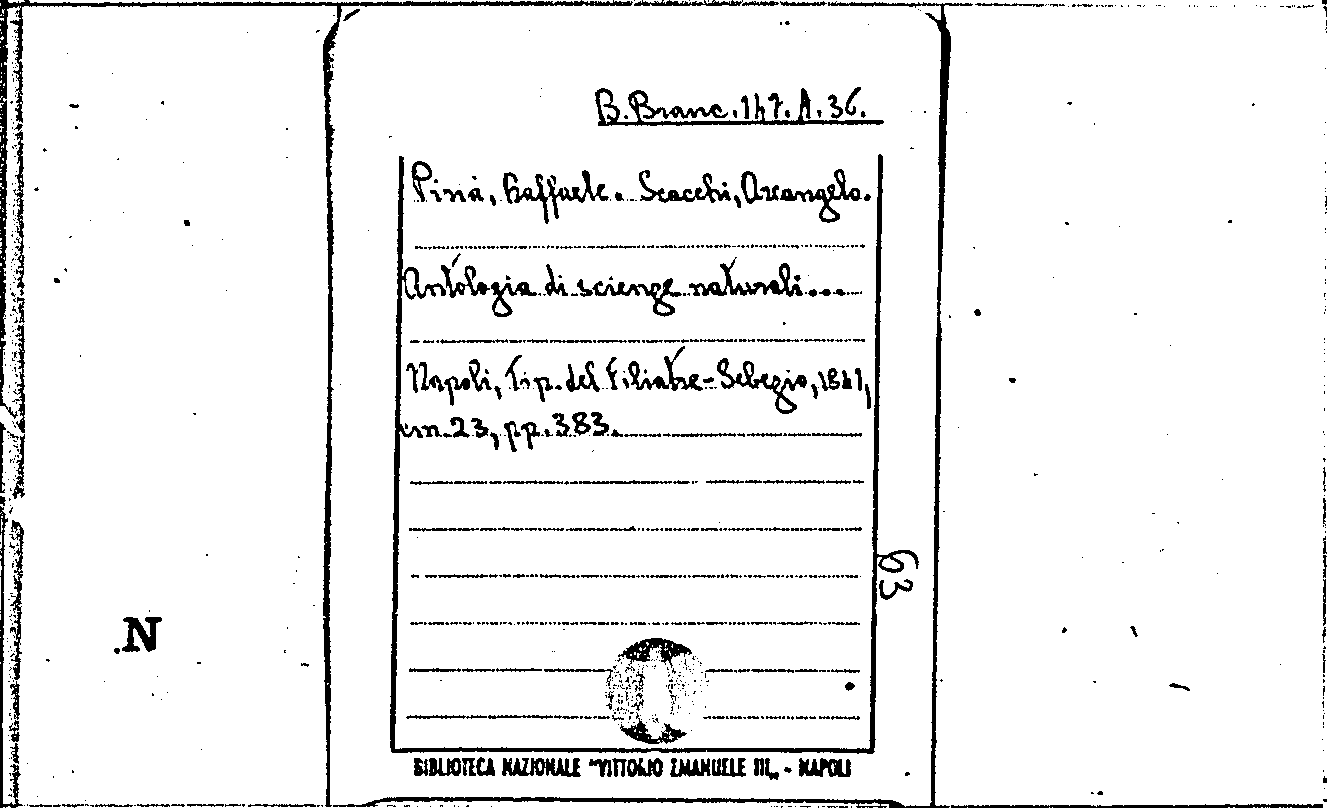 B. Branc. 147. A. 36.
Piria, Raffaele. Scacchi, Arcangelo.
Antologia di scienze naturali...
Napoli, Tip. del Filiatre-Sebezio, 1841,
cm. 23, pp. 383.
63
.N
BIBLIOTECA NAZIONALE "VITTORIO EMANUELE III„ - NAPOLI